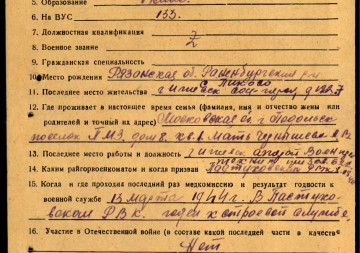 5. Образование
6. На ВУС 133.
7. Должностная квалификация
8. Военное звание
9. Гражданская специальность
10. Место рождения Рязанская об. Раненбургский р-н
11. Последнее место жительства г. Ижевск
12. Где проживает в настоящее время семья (фамилия, имя и отчество жены или
родителей и точный их адрес) Московская об. г. Подольск
поселок ПМЗ, дом 8. кв. 1. Мать
13. Последнее место работы и должность г. Ижевск
14. Каким райгорвоенкоматом и когда призван
15. Когда и где проходил последний раз медкомиссию и результат годности к
военной службе 13 марта 1944 г. В Пастухо-
вском РВК. годен к строевой службе
16. Участие в Отечественной войне (в составе какой последней части в качестве
Нет